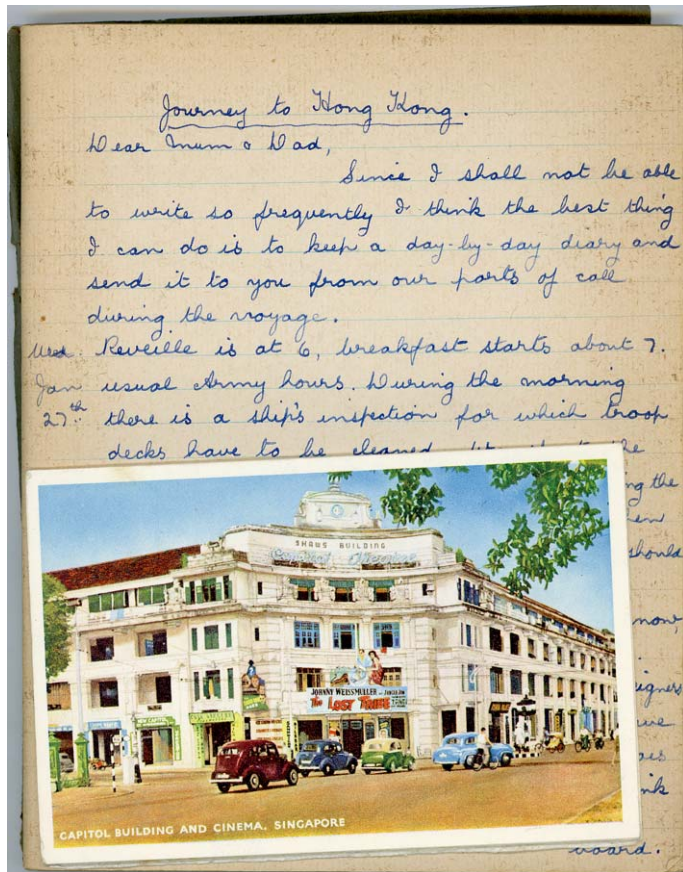 Journey to Hong Kong.
Dear Mum & Dad,
Since I shall not be able
to write so frequently I think the best thing
I can do is to keep a day-by-day diary and
send it to you from our ports of call
during the voyage.
Wed. Reveille is at 6, breakfast starts about 7.
Jan usual Army hours. During the morning
27th there is a ship's inspection for which troop
decks have to be cleaned the
the
should
now,
SHAWS BUILDING
JOHNNY WEISSMULLER as JUNGLE JIM
The LOST TRIBE
CAPITOL BUILDING AND CINEMA, SINGAPORE
board.